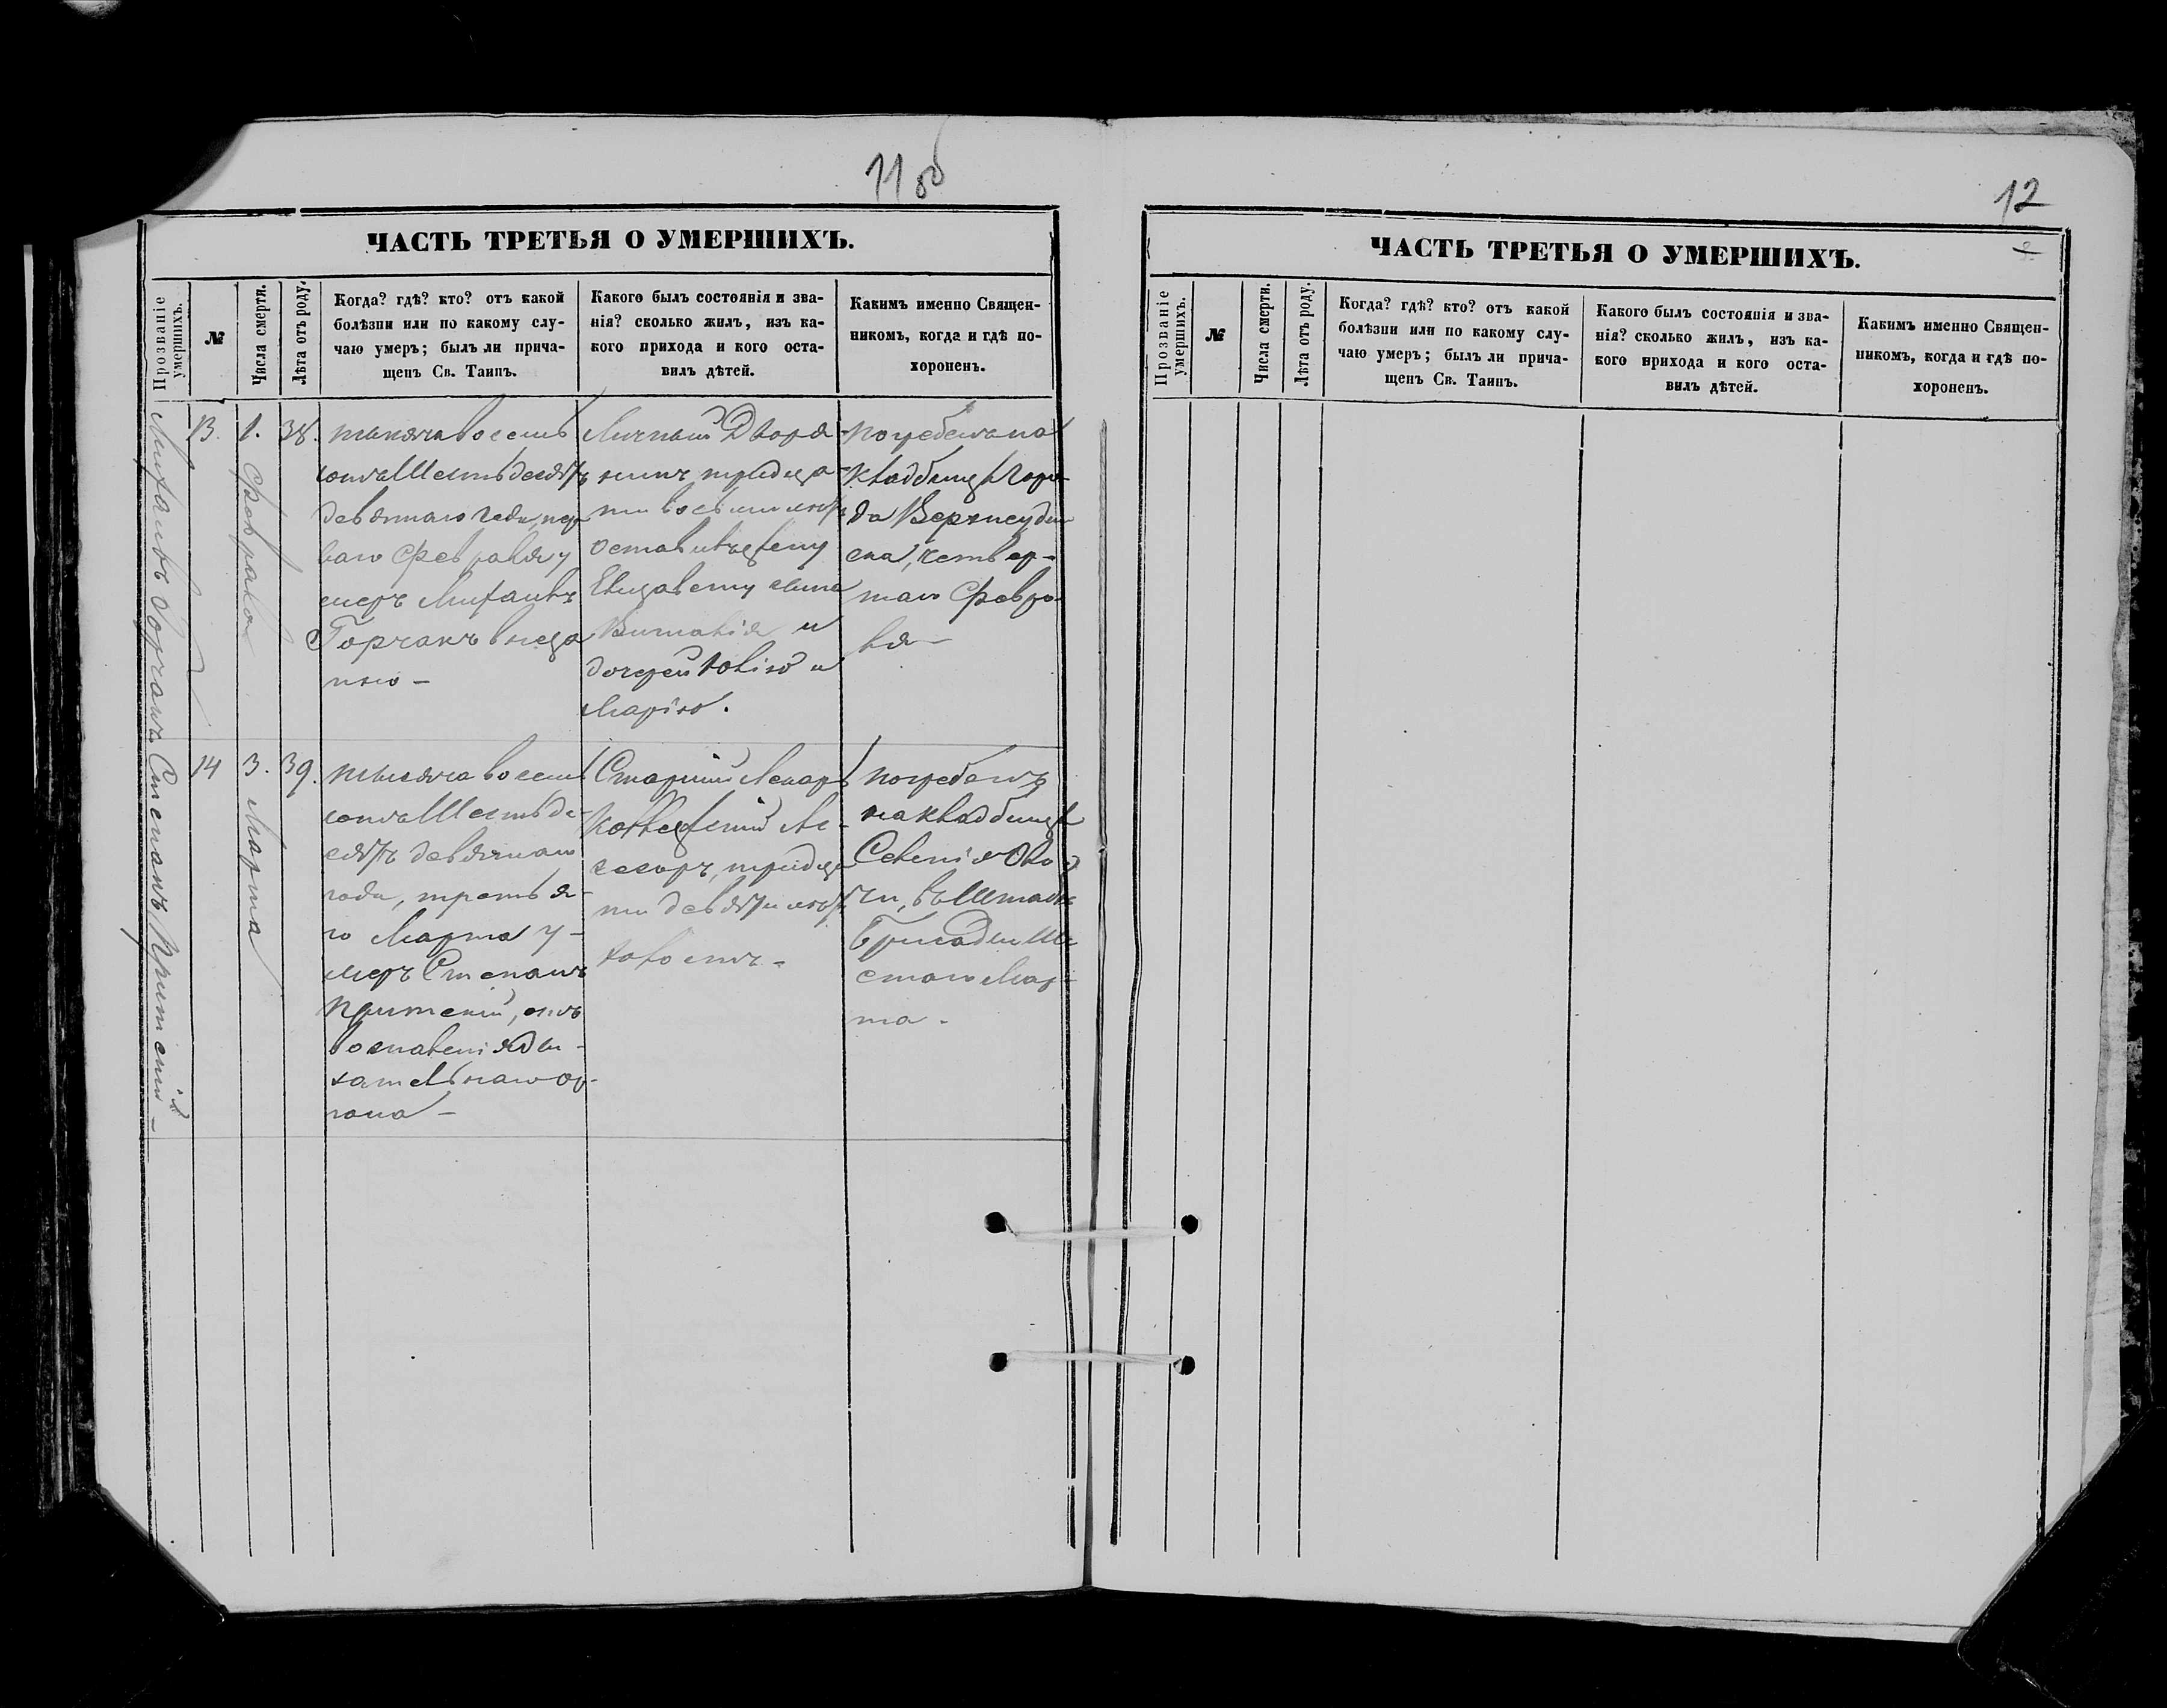 11 об
ЧАСТЬ ТРЕТЬЯ О УМЕРШИХЪ.
Прозваніе умершихъ.
№
Числа смерти.
Лѣта отъ роду.
Когда? гдѣ? кто? отъ какой
болѣзни или по какому слу-
чаю умеръ; былъ ли прича-
щенъ Св. Таинъ.
Какого былъ состоянія и зва-
нія? сколько жилъ, изъ ка-
кого прихода и кого оста-
вилъ дѣтей.
Какимъ именно Священ-
никомъ, когда и гдѣ по-
хороненъ.
Михаилъ Горчакъ
13.
1. Февраля
38.
тысяча восемь
сотъ Шестьдесятъ
девятаго года, пер
ваго Февраля у
меръ Михаилъ
Горчакъ внеза
пно –
Личный Дворя
нинъ тридца-
ти восьми лѣтъ
оставивъ жену
Елизавету сына
Виталія и
дочерей и
Марію.
погребенъ на
кладбищѣ горо
да Верхнеудин
ска, четвер-
таго Февра
ля –
Степанъ
14
3. Марта
39.
тысяча восемь
сотъ Шестьде-
сятъ девятаго
года, третья-
го Марта у-
меръ Степанъ
отъ
воспаленія ды-
хательнаго ор-
гана –
Старшій Лекарь
Коллежскій Ас-
сесоръ, тридца
ти девяти лѣтъ
холостъ –
погребенъ
на кладбищѣ
Селенія
въ Штабѣ
Бригады Ше
стаго Мар-
та –
12
ЧАСТЬ ТРЕТЬЯ О УМЕРШИХЪ.
Прозваніе умершихъ.
№
Числа смерти.
Лѣта отъ роду.
Когда? гдѣ? кто? отъ какой
болѣзни или по какому слу-
чаю умеръ; былъ ли прича-
щенъ Св. Таинъ.
Какого былъ состоянія и зва-
нія? сколько жилъ, изъ ка-
кого прихода и кого оста-
вилъ дѣтей.
Какимъ именно Священ-
никомъ, когда и гдѣ по-
хороненъ.